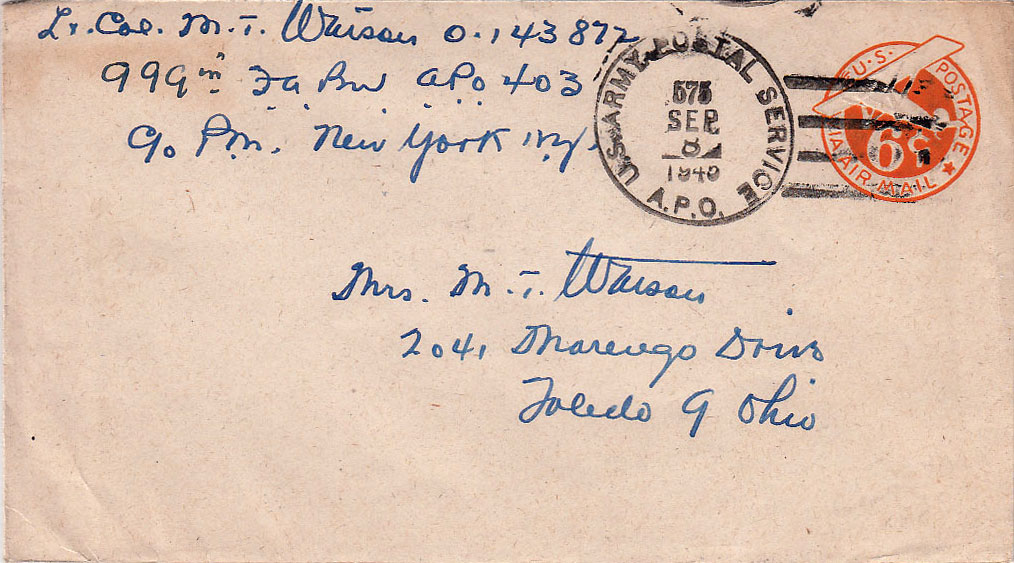 Lt. Col. M. T. Watson O-143872
999th Fa Bn APO 403
c/o P.M. New York N.Y.
U.S. ARMY POSTAL SERVICE
575
SEP
8
1945
A.P.O.
U.S. POSTAGE
6¢
VIA AIR MAIL
Mrs. M. T. Watson
2041 Marengo Drive
Toledo 9 Ohio